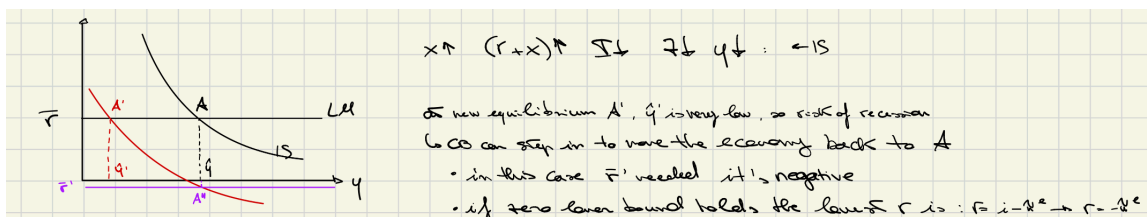 x↑ (r+x)↑ I↓ Z↓ y↓ : ←IS
r̄ A' A LM
new equilibrium A', ŷ' is very low, so risk of recession
IS
↳ CB can step in to move the economy back to A
ŷ' ŷ
y
• in this case r̄' needed it's negative
r̄' A"
• if zero lower bound holds the lowest r is : r= i-π^e → r=-π^e